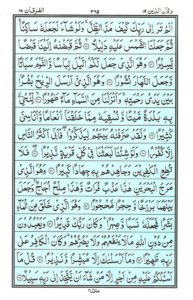 وقال الذين ١٩ ٣٦٥ الفرقان ٢٥
اَلَمْ تَرَ اِلٰى رَبِّكَ كَيْفَ مَدَّ الظِّلَّ وَلَوْ شَآءَ لَجَعَلَهٗ سَاكِنًا
ثُمَّ جَعَلْنَا الشَّمْسَ عَلَيْهِ دَلِيْلًا ثُمَّ قَبَضْنٰهُ اِلَيْنَا قَبْضًا
يَّسِيْرًا وَهُوَ الَّذِيْ جَعَلَ لَكُمُ الَّيْلَ لِبَاسًا وَّالنَّوْمَ سُبَاتًا
وَّجَعَلَ النَّهَارَ نُشُوْرًا وَهُوَ الَّذِيْٓ اَرْسَلَ الرِّيٰحَ بُشْرًا
بَيْنَ يَدَيْ رَحْمَتِهٖ وَاَنْزَلْنَا مِنَ السَّمَآءِ مَآءً طَهُوْرًا لِّنُحْيِۦَ
بِهٖ بَلْدَةً مَّيْتًا وَّنُسْقِيَهٗ مِمَّا خَلَقْنَآ اَنْعَامًا وَّاَنَاسِيَّ
كَثِيْرًا وَلَقَدْ صَرَّفْنٰهُ بَيْنَهُمْ لِيَذَّكَّرُوْا فَاَبٰىٓ اَكْثَرُ النَّاسِ
اِلَّا كُفُوْرًا وَلَوْ شِئْنَا لَبَعَثْنَا فِيْ كُلِّ قَرْيَةٍ نَّذِيْرًا فَلَا
تُطِعِ الْكٰفِرِيْنَ وَجَاهِدْهُمْ بِهٖ جِهَادًا كَبِيْرًا وَهُوَ الَّذِيْ
مَرَجَ الْبَحْرَيْنِ هٰذَا عَذْبٌ فُرَاتٌ وَّهٰذَا مِلْحٌ اُجَاجٌ وَجَعَلَ
بَيْنَهُمَا بَرْزَخًا وَّحِجْرًا مَّحْجُوْرًا وَهُوَ الَّذِيْ خَلَقَ مِنَ الْمَآءِ بَشَرًا
فَجَعَلَهٗ نَسَبًا وَّصِهْرًا وَكَانَ رَبُّكَ قَدِيْرًا وَيَعْبُدُوْنَ
مِنْ دُوْنِ اللّٰهِ مَا لَا يَنْفَعُهُمْ وَلَا يَضُرُّهُمْ وَكَانَ الْكَافِرُ عَلٰى
رَبِّهٖ ظَهِيْرًا وَمَآ اَرْسَلْنٰكَ اِلَّا مُبَشِّرًا وَّنَذِيْرًا قُلْ مَآ
اَسْـَٔلُكُمْ عَلَيْهِ مِنْ اَجْرٍ اِلَّا مَنْ شَآءَ اَنْ يَّتَّخِذَ اِلٰى رَبِّهٖ سَبِيْلًا
منزل ٤